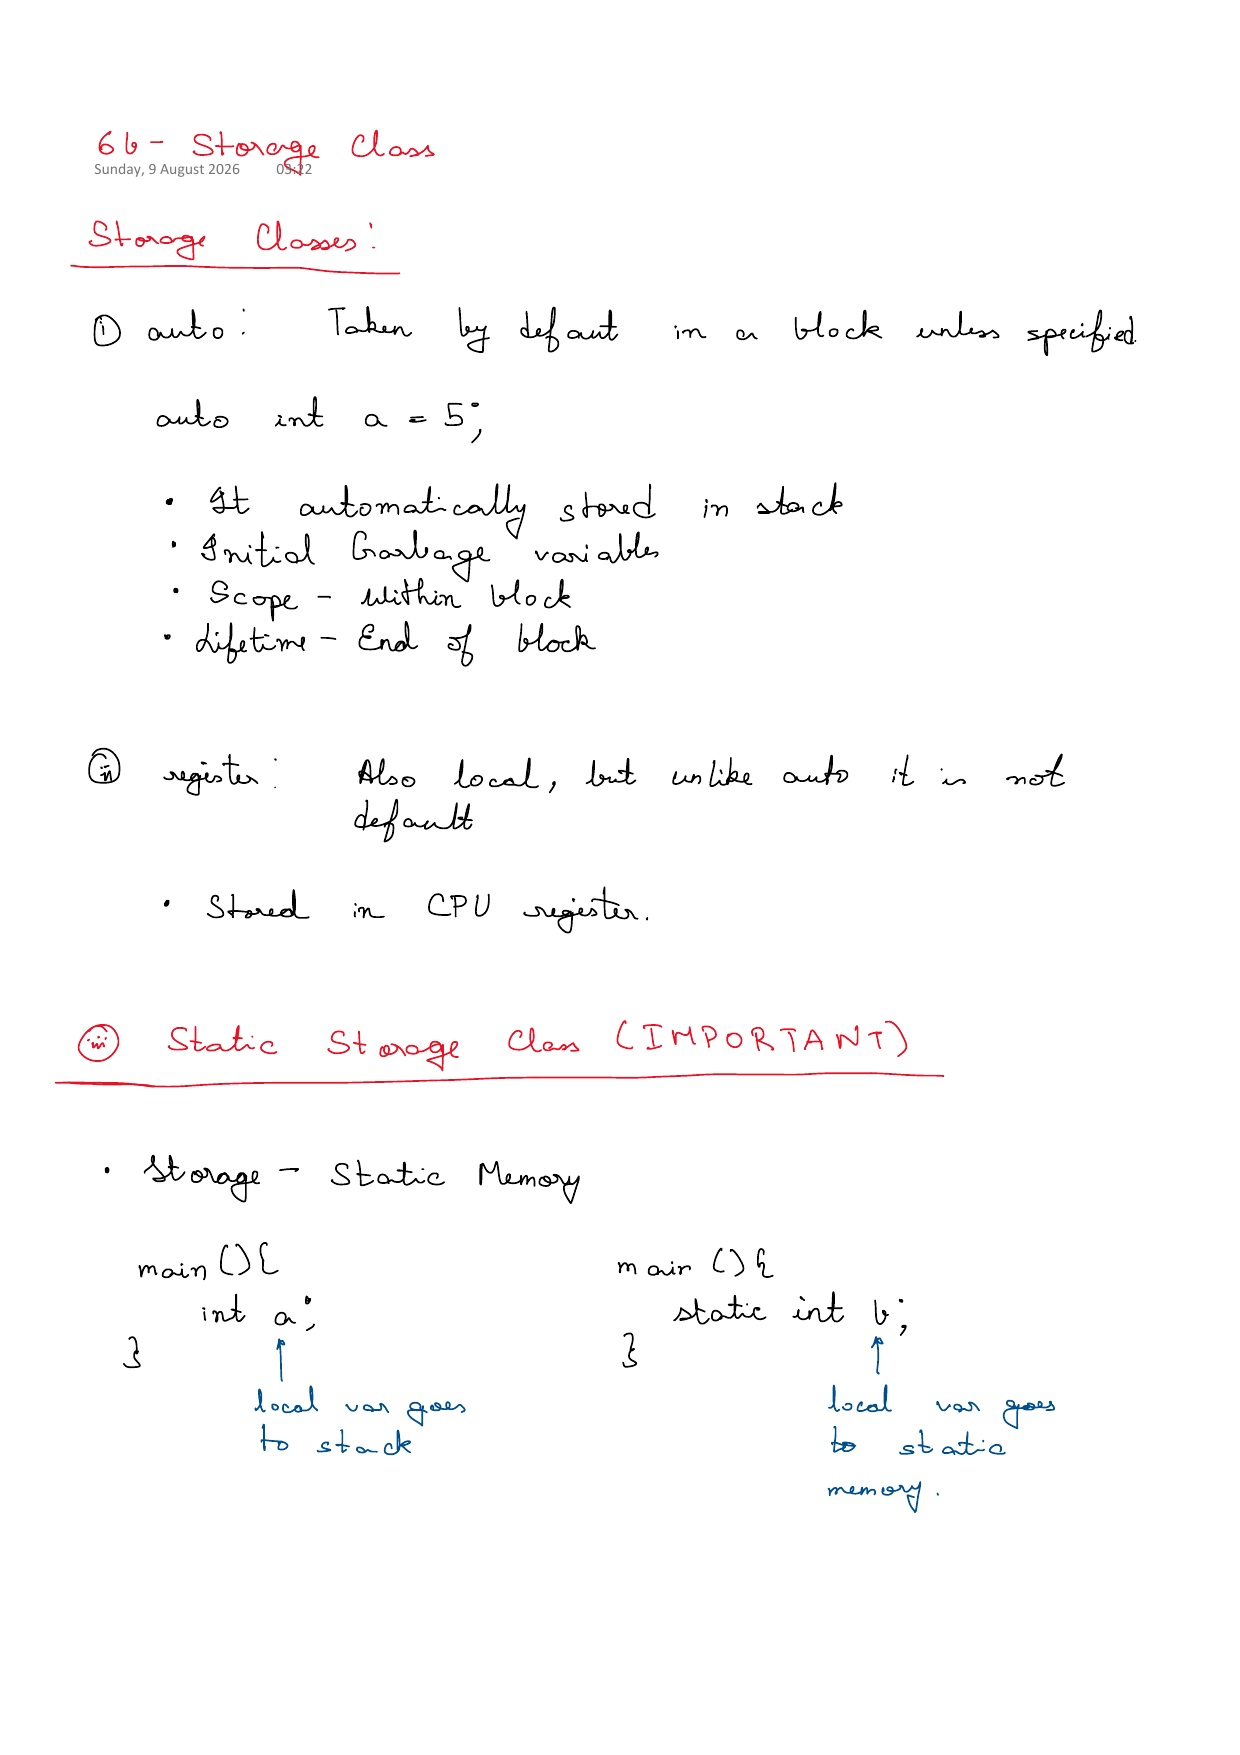 6b - Storage Class
Sunday, 9 August 2026 03:22
Storage Classes:
(i) auto: Taken by defaut in a block unless specified.
auto int a = 5;
• It automatically stored in stack
• Initial Garbage variables
• Scope - Within block
• Lifetime - End of block
(ii) register: Also local, but unlike auto it is not
default
• Stored in CPU register.
(iii) Static Storage Class (IMPORTANT)
• Storage - Static Memory
main () { main () {
int a; static int b;
} }
local var goes local var goes
to stack to static
memory.